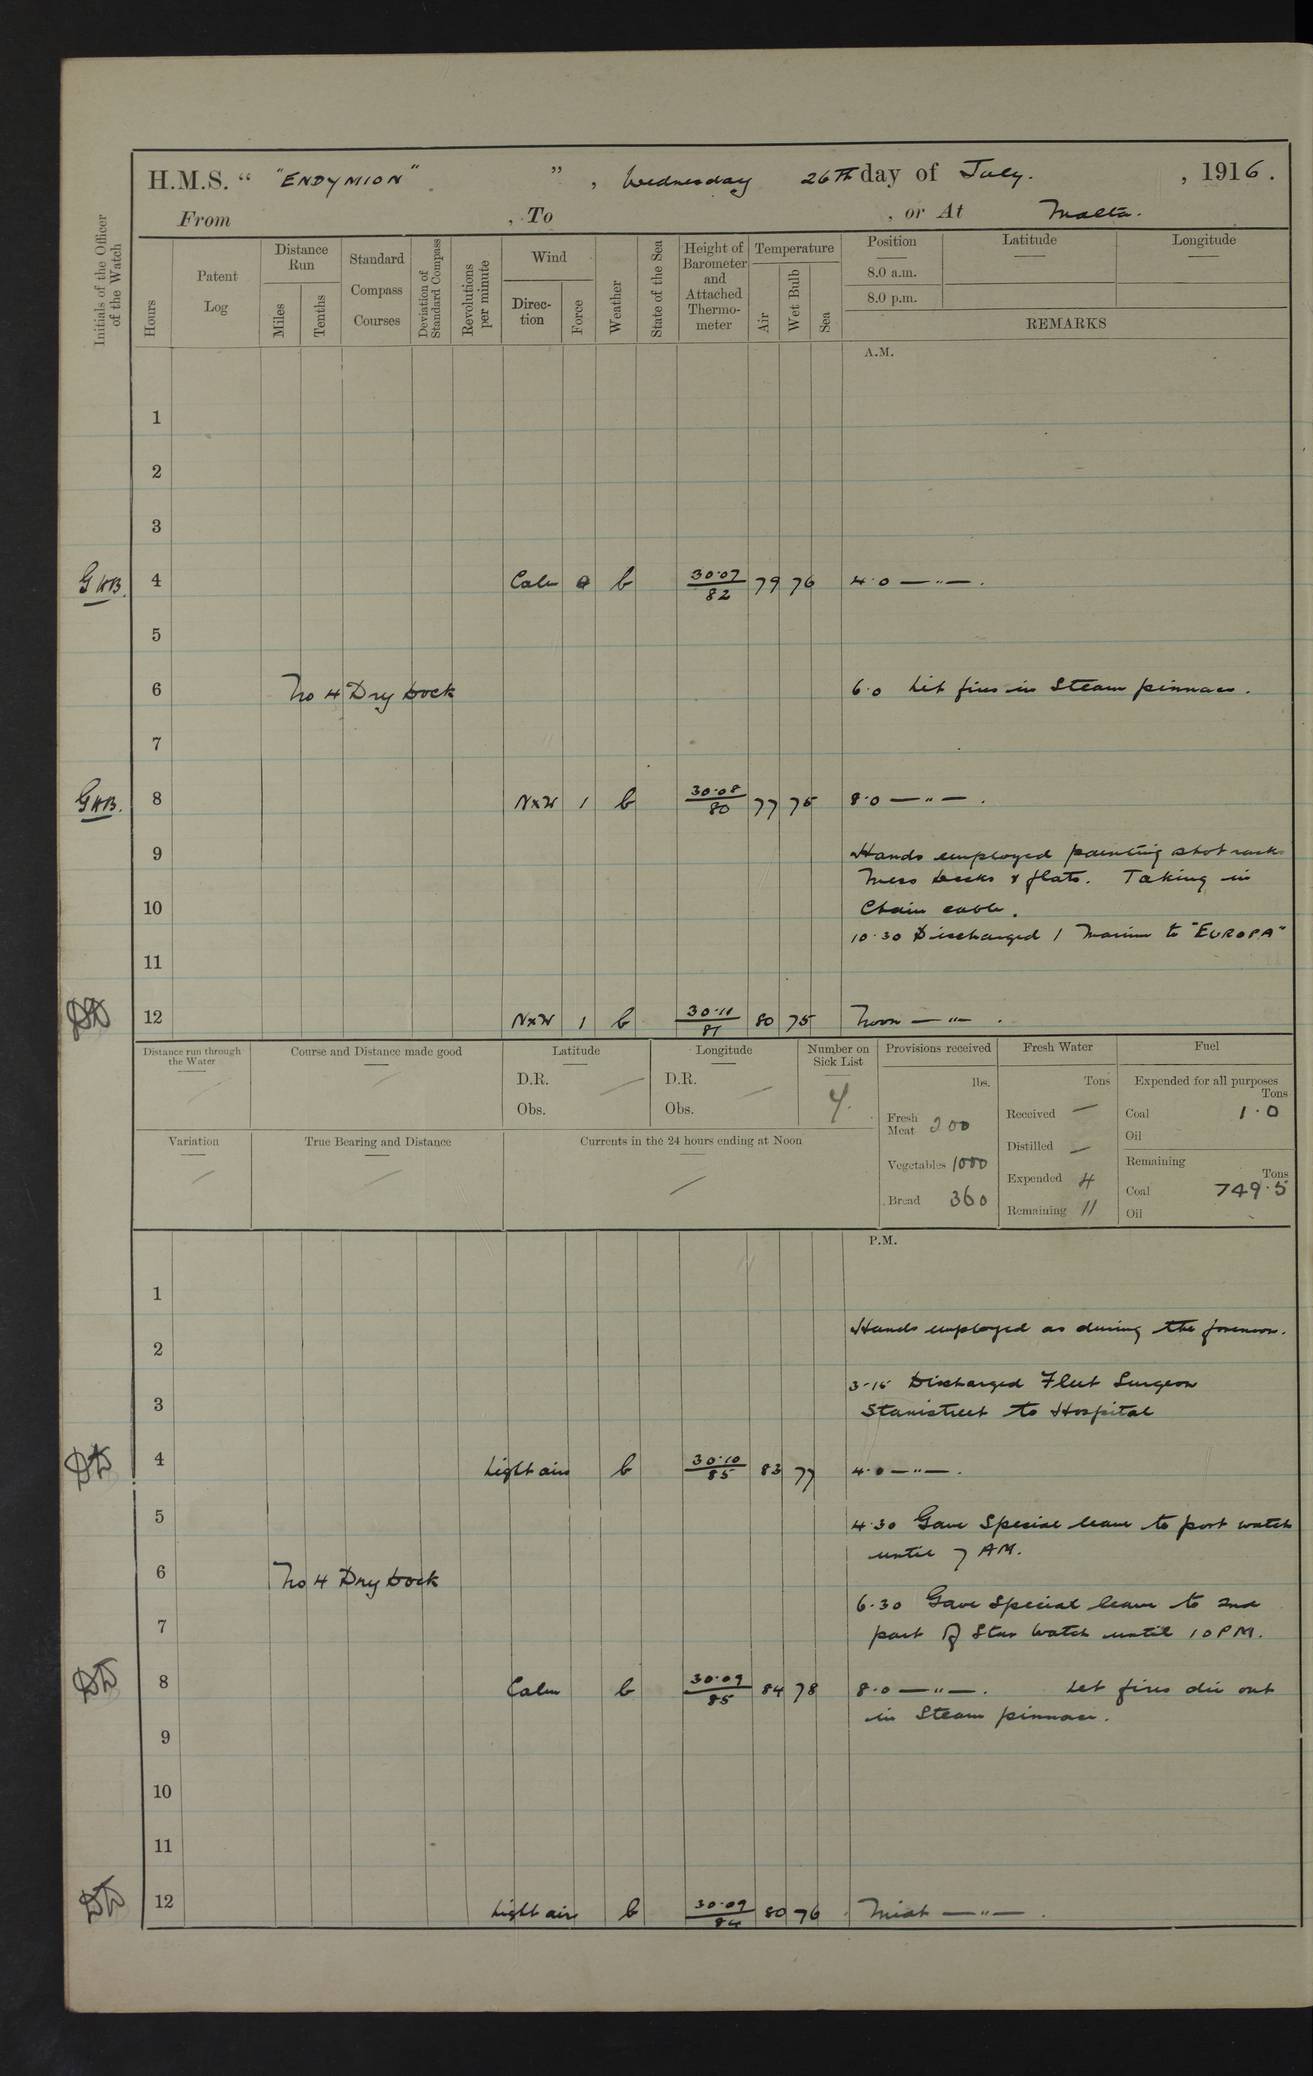 H.M.S. “ "ENDYMION" ” , Wednesday 26th day of July. , 1916.
From , To , or At Malta.
Initials of the Officer of the Watch
Hours
Patent Log
Distance Run
Miles
Tenths
Standard Compass Courses
Deviation of Standard Compass
Revolutions per minute
Wind
Direction
Force
Weather
State of the Sea
Height of Barometer and Attached Thermometer
Temperature
Air
Wet Bulb
Sea
Position Latitude Longitude
8.0 a.m.
8.0 p.m.
REMARKS
A.M.
1
2
3
GWB. 4 Calm 0 b 30.07/82 79 76 4.0 — " — .
5
6 No 4 Dry Dock 6.0 Lit fires in Steam pinnace.
7
GWB. 8 NxW 1 b 30.08/80 77 75 8.0 — " — .
9 Hands employed painting shot racks
Mess decks & flats. Taking in
10 Chain cable.
10.30 Discharged 1 Marine to "EUROPA"
11
12 NxW 1 b 30.11/81 80 75 Noon — " — .
Distance run through the Water
Course and Distance made good
Latitude
D.R.
Obs.
Longitude
D.R.
Obs.
Number on Sick List
4.
Provisions received
lbs.
Fresh Meat 200
Vegetables 1000
Bread 360
Fresh Water
Tons
Received —
Distilled —
Expended 4
Remaining 11
Fuel
Expended for all purposes
Tons
Coal 1.0
Oil
Remaining
Tons
Coal 749.5
Oil
Variation
True Bearing and Distance
Currents in the 24 hours ending at Noon
P.M.
1
Hands employed as during the forenoon.
2
3.15 Discharged Fleet Surgeon
3 Stanistreet to Hospital
4 Light airs b 30.10/85 83 77 4.0 — " — .
5 4.30 Gave Special leave to port watch
until 7 AM.
6 No 4 Dry Dock
6.30 Gave Special leave to 2nd
7 part of Star Watch until 10 PM.
8 Calm b 30.09/85 84 78 8.0 — " — . Let fires die out
in Steam pinnace.
9
10
11
12 Light airs b 30.09/84 80 76 Midt — " — .